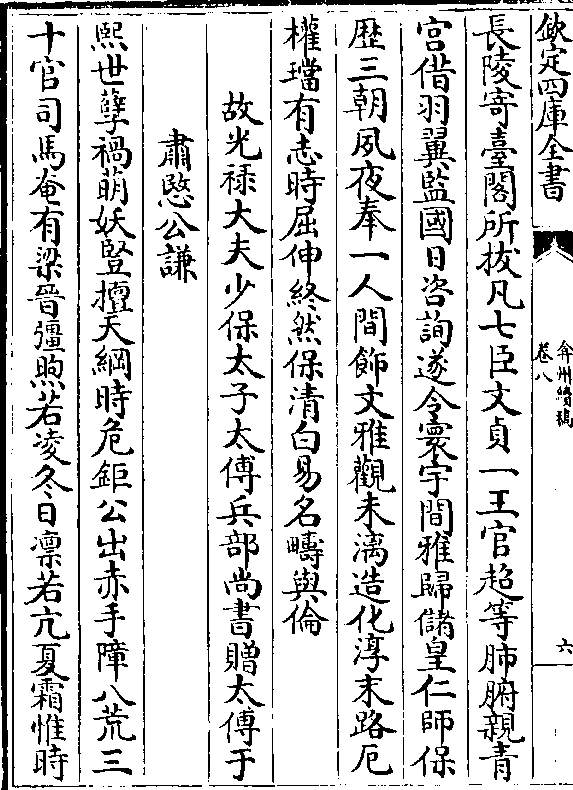 欽定四庫全書
弇州續稿
卷八
六
長陵寄臺閣所拔凡七臣文貞一王官超等肺腑親青
宮借羽翼監國日咨詢遂令寰宇間雅歸儲皇仁師保
歴三朝夙夜奉一人間飾文雅觀未漓造化淳末路厄
權璫有志時屈伸終然保清白易名疇與倫
故光祿大夫少保太子太傅兵部尚書贈太傅于
肅愍公謙
熙世孽禍萌妖豎擅天綱時危鉅公出赤手障八荒三
十官司馬奄有梁晉彊煦若凌冬日凛若亢夏霜惟時